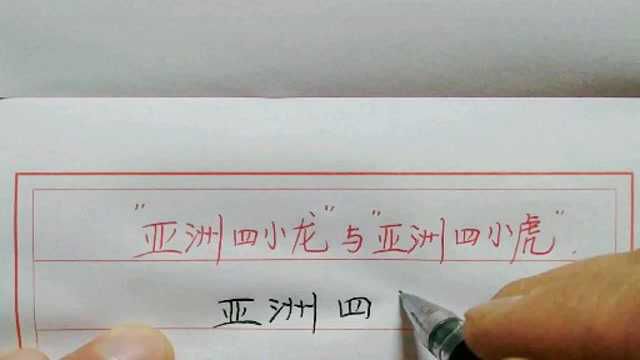 "亚洲四小龙"与"亚洲四小虎"
亚洲四